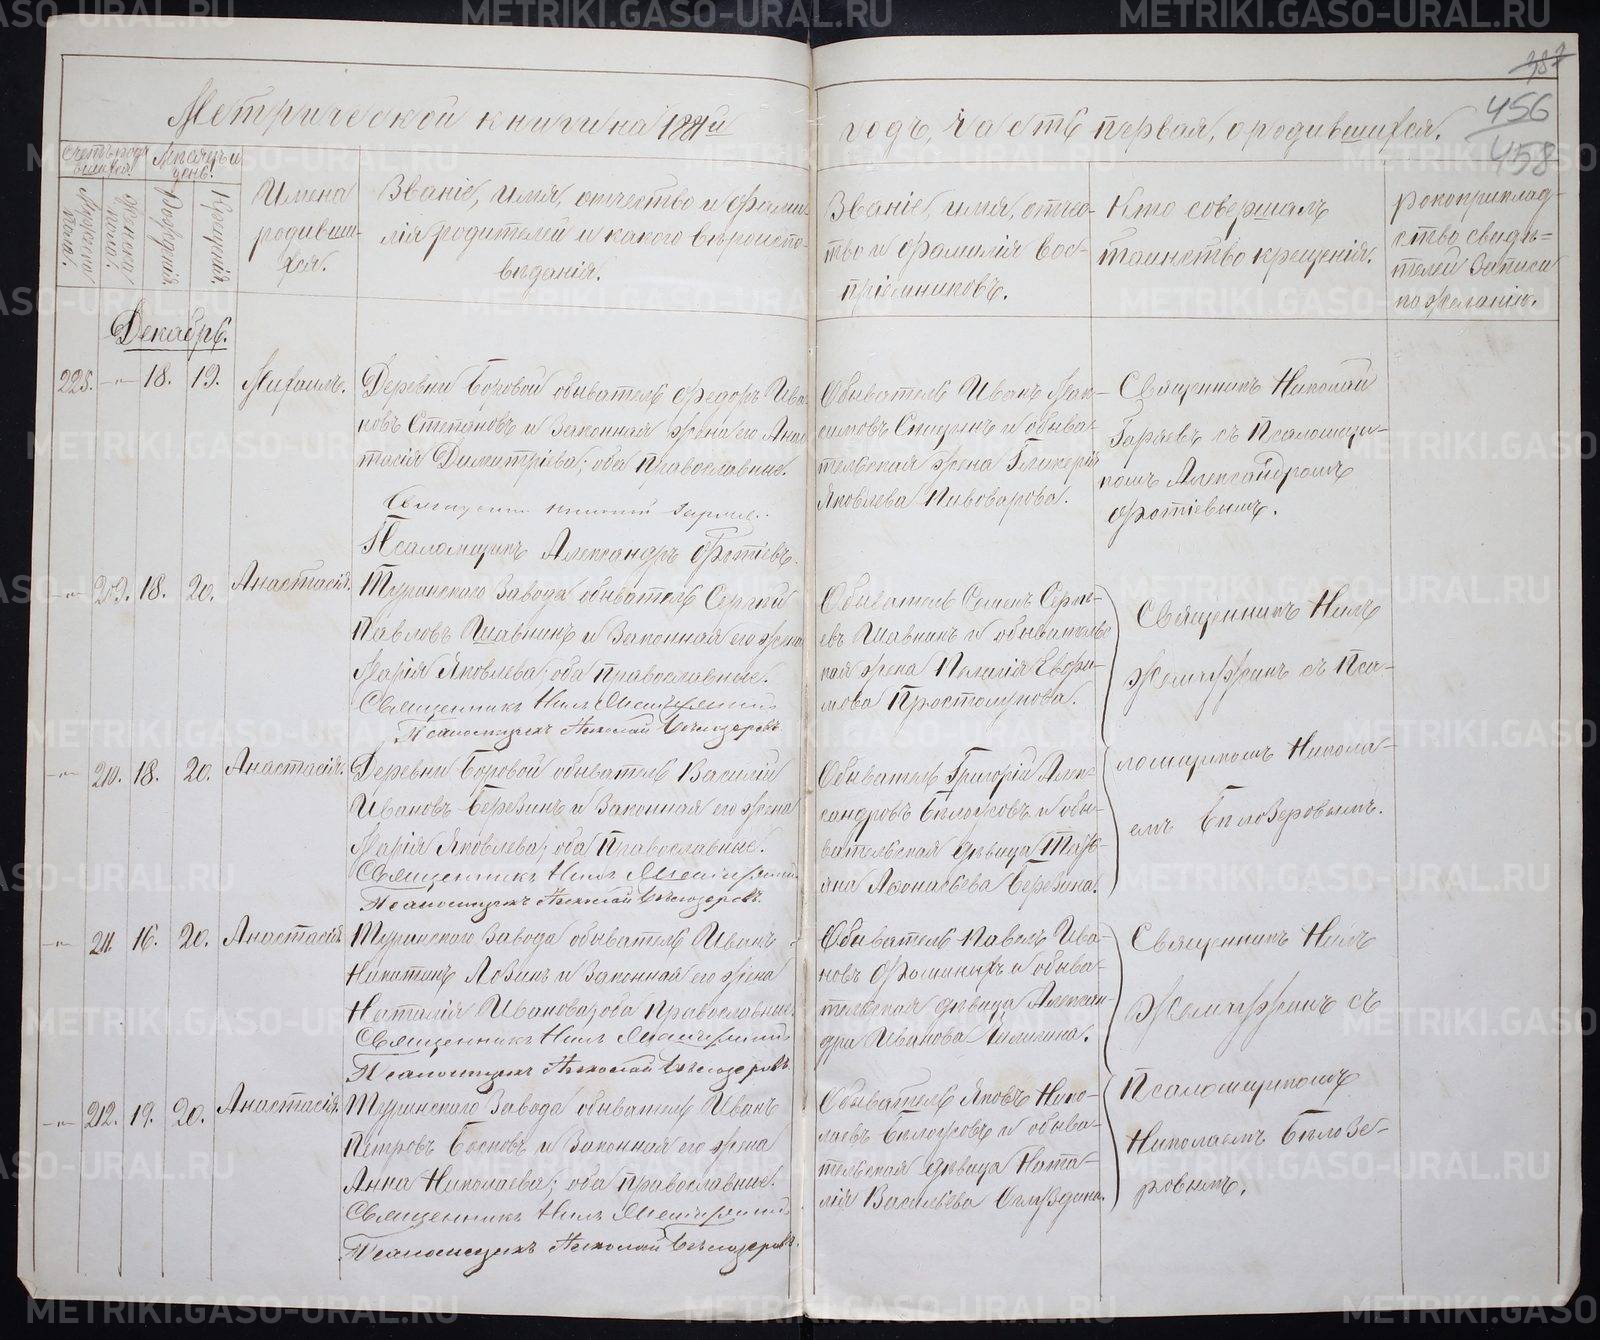 382
456
458
Метрической книги на 1881й годъ, часть первая, о родившихся.
Счетъ родившихся.
Мужеска пола.
Женска пола.
Мѣсяцъ и день.
Рожденія.
Крещенія.
Имена родившихся.
Званіе, имя, отчество и фами-
лія родителей и какого вѣроиспо-
вѣданія.
Званіе, имя, отчес-
тво и фамилія вос-
пріемниковъ.
Кто совершалъ
таинство крещенія.
рукоприклад-
ство свидѣ-
телей записи
по желанію.
Декабрь.
225. 18. 19. Михаилъ.
Деревни Боровой обыватель Федоръ Ива-
новъ Степановъ и законная жена его Анас-
тасія Димитріева; оба православные.
Священник
Псаломщикъ Александръ Фотіевъ.
Обыватель Иванъ Мак-
симовъ Спицынъ и обыва-
тельская жена Гликерія
Яковлева Пивоварова.
Священникъ Николай
Гаряевъ съ Псаломщи-
комъ Александромъ
Фотіевымъ.
209. 18. 20. Анастасія.
Туринскаго завода обыватель Сергѣй
Павловъ Шавнинъ и законная его жена
Марія Яковлева; оба православные.
Священникъ Нилъ
Псаломщикъ Николай Бѣлозеровъ
Обыватель Семенъ Сергѣ-
евъ Шавнинъ и обыватель-
ская жена Пелагія Евфи-
мова Простолупова.
Священникъ Нилъ
съ Пса-
ломщикомъ Никола-
емъ Бѣлозеровымъ.
210. 18. 20. Анастасія.
Деревни Боровой обыватель Василій
Ивановъ Березинъ и законная его жена
Марія Яковлева; оба православные.
Священникъ Нилъ
Псаломщикъ Николай Бѣлозеровъ.
Обыватель Григорій Алек-
сандровъ и обы-
вательская дѣвица Татья-
яна Афонасьева Березина.
211. 16. 20. Анастасія
Туринскаго завода обыватель Иванъ
Никитинъ и законная его жена
Наталія Иванова; оба православные.
Священникъ Нилъ
Псаломщикъ Николай Бѣлозеровъ.
Обыватель Павелъ Ива-
новъ Фоминыхъ и обыва-
тельская дѣвица Алексан-
дра Иванова
Священникъ Нилъ
съ
Псаломщикомъ
Николаемъ Бѣлозе-
ровымъ.
212. 19. 20. Анастасія.
Туринскаго завода обыватель Иванъ
Петровъ и законная его жена
Анна Николаева; оба православные.
Священникъ Нилъ
Псаломщикъ Николай Бѣлозеровъ.
Обыватель Яковъ Нико-
лаевъ и обыва-
тельская дѣвица Ната-
лія Васильева
METRIKI.GASO-URAL.RU